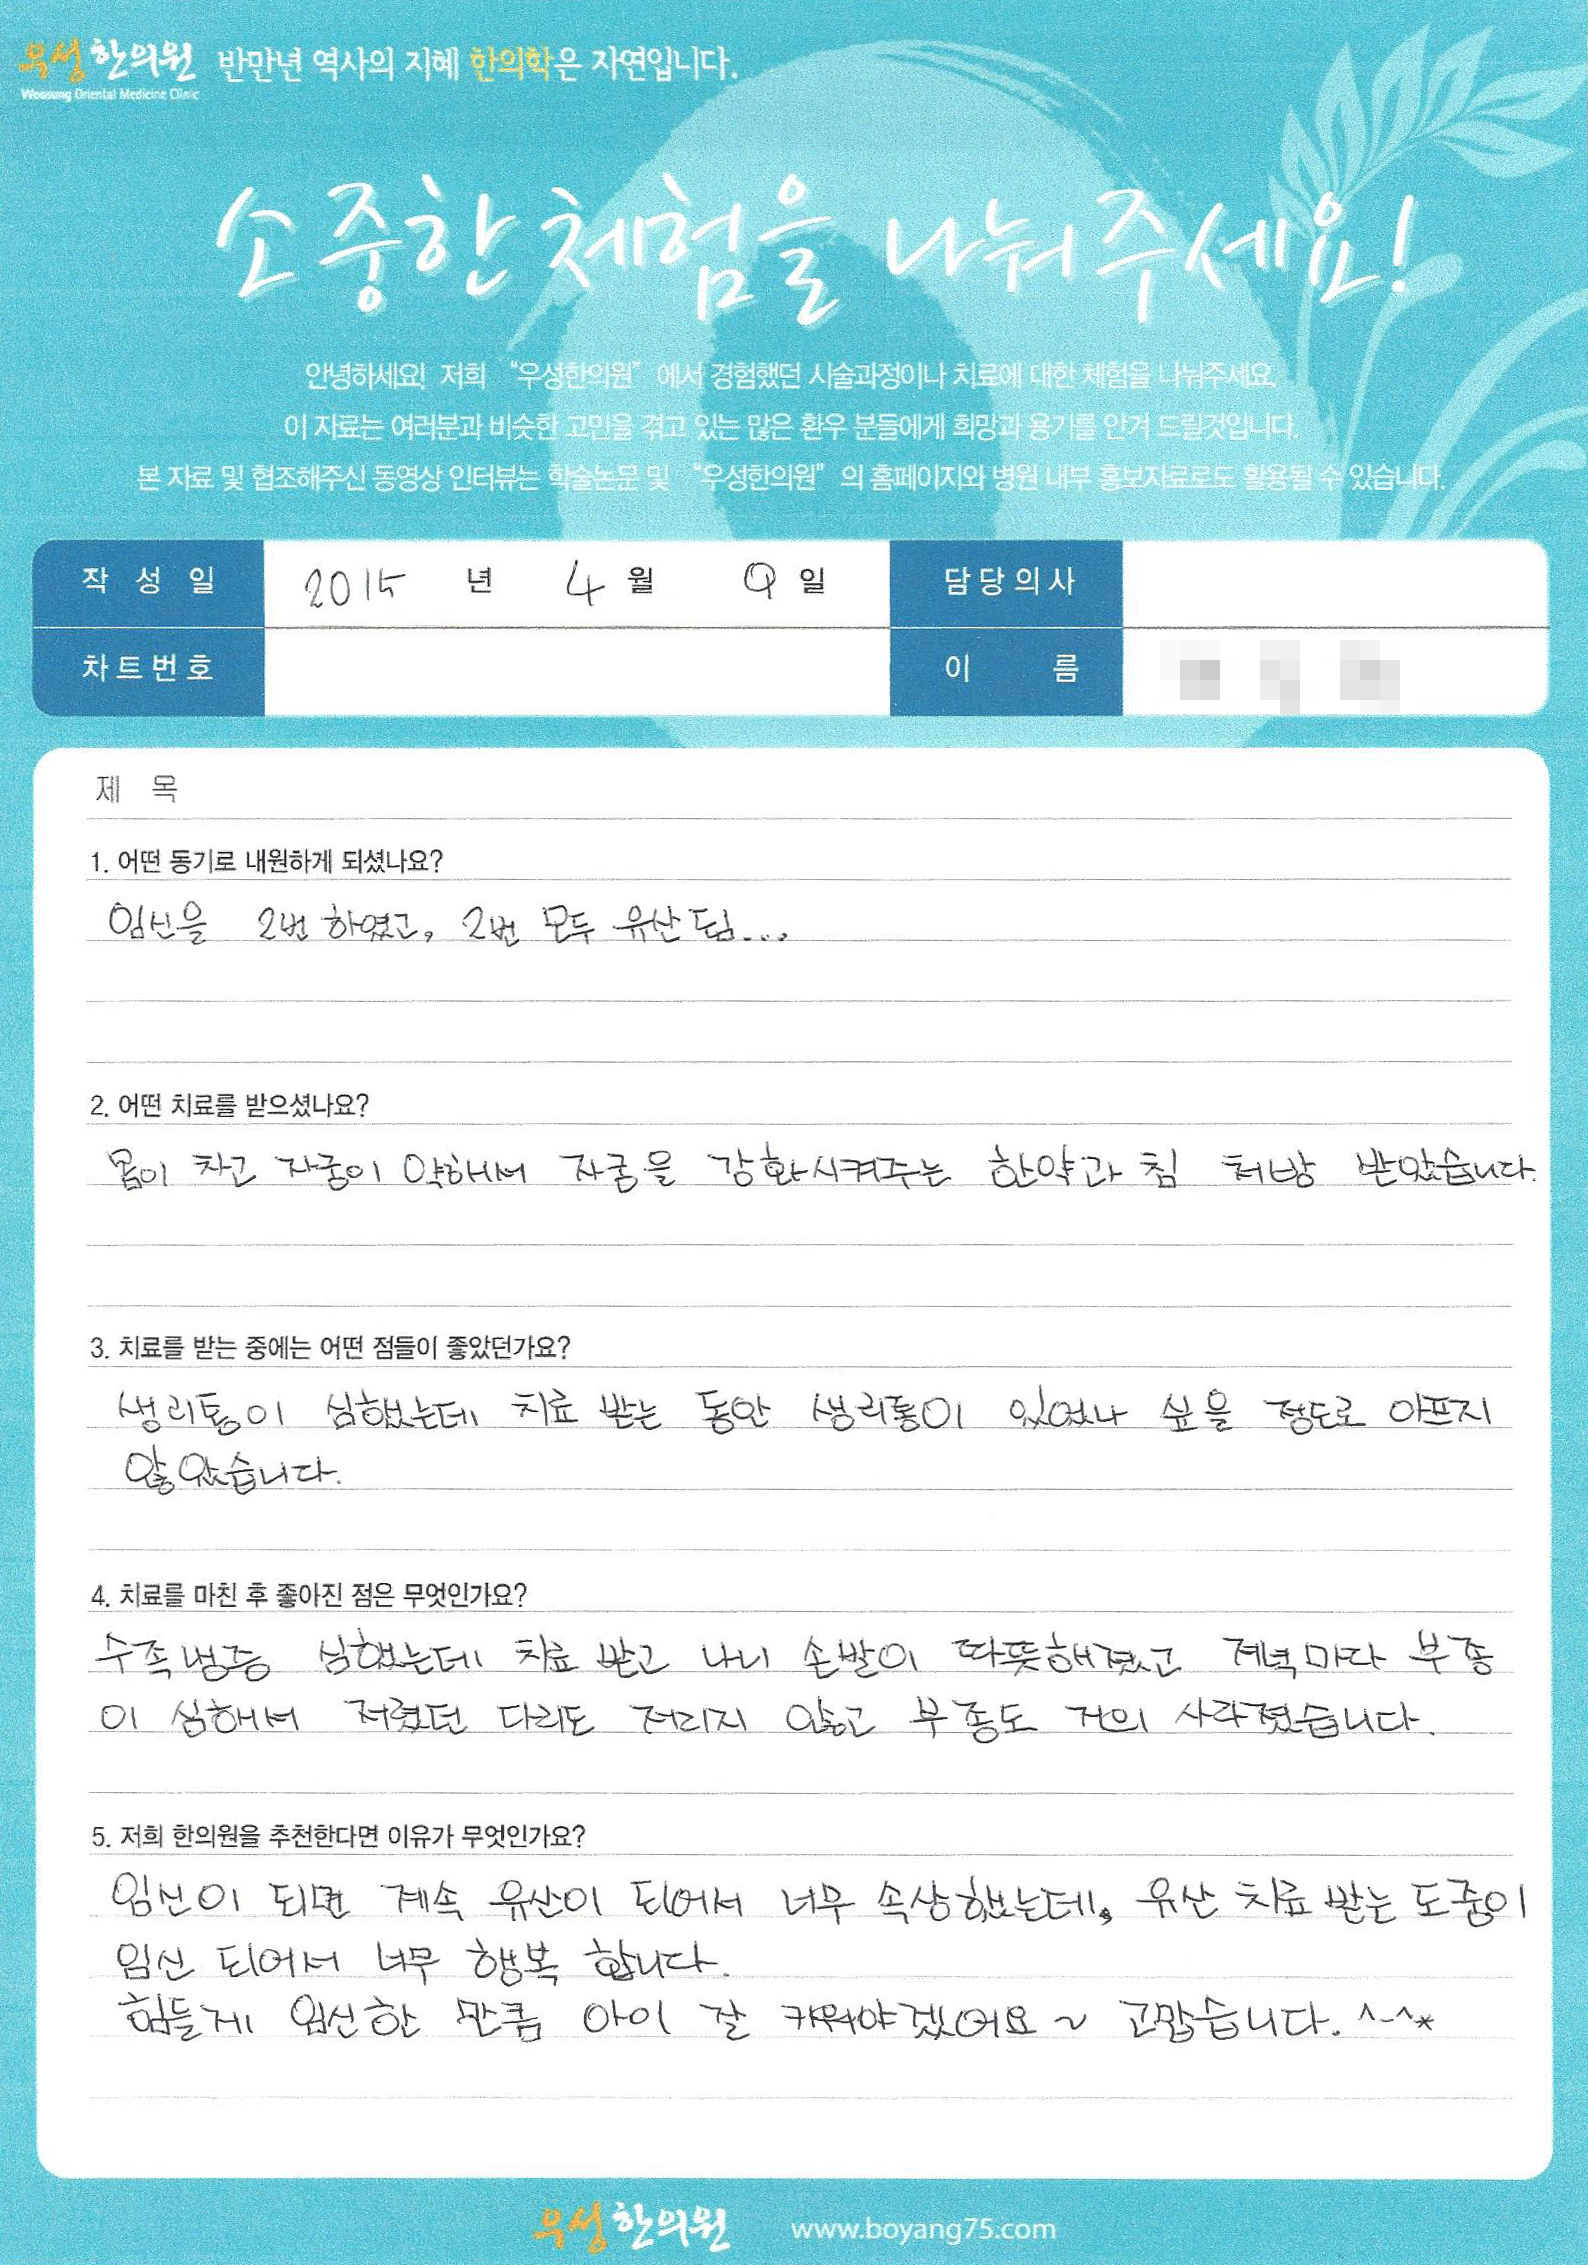 우성한의원 반만년 역사의 지혜 한의학은 자연입니다.
Woosung Oriental Medicine Clinic
소중한 체험을 나눠주세요!
안녕하세요! 저희 “우성한의원” 에서 경험했던 시술과정이나 치료에 대한 체험을 나눠주세요.
이 자료는 여러분과 비슷한 고민을 겪고 있는 많은 환우 분들에게 희망과 용기를 안겨 드릴것입니다.
본 자료 및 협조해주신 동영상 인터뷰는 학술논문 및 “우성한의원” 의 홈페이지와 병원 내부 홍보자료로도 활용될 수 있습니다.
작성일 2015 년 4 월 9 일 담당의사
차트번호 이름
제 목
1. 어떤 동기로 내원하게 되셨나요?
임신을 2번 하였고, 2번 모두 유산 됨...
2. 어떤 치료를 받으셨나요?
몸이 차고 자궁이 약해서 자궁을 강화시켜주는 한약과 침 처방 받았습니다.
3. 치료를 받는 중에는 어떤 점들이 좋았던가요?
생리통이 심했는데 치료 받는 동안 생리통이 있었나 싶을 정도로 아프지
않았습니다.
4. 치료를 마친 후 좋아진 점은 무엇인가요?
수족냉증 심했는데 치료 받고 나니 손발이 따뜻해졌고 저녁마다 부종
이 심해서 저렸던 다리도 저리지 않고 부종도 거의 사라졌습니다.
5. 저희 한의원을 추천한다면 이유가 무엇인가요?
임신이 되면 계속 유산이 되어서 너무 속상했는데, 유산 치료 받는 도중이
임신 되어서 너무 행복 합니다.
힘들게 임신한 만큼 아이 잘 키워야겠어요~ 고맙습니다. ^-^*
우성한의원 www.boyang75.com